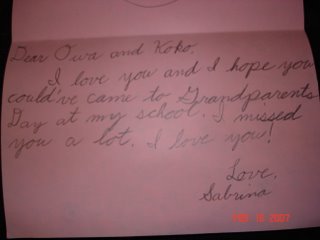 Dear Owa and Koko,
I love you and I hope you
could've came to Grandparents
Day at my school. I missed
you a lot. I love you!
Love,
Sabrina
FEB 16 2007